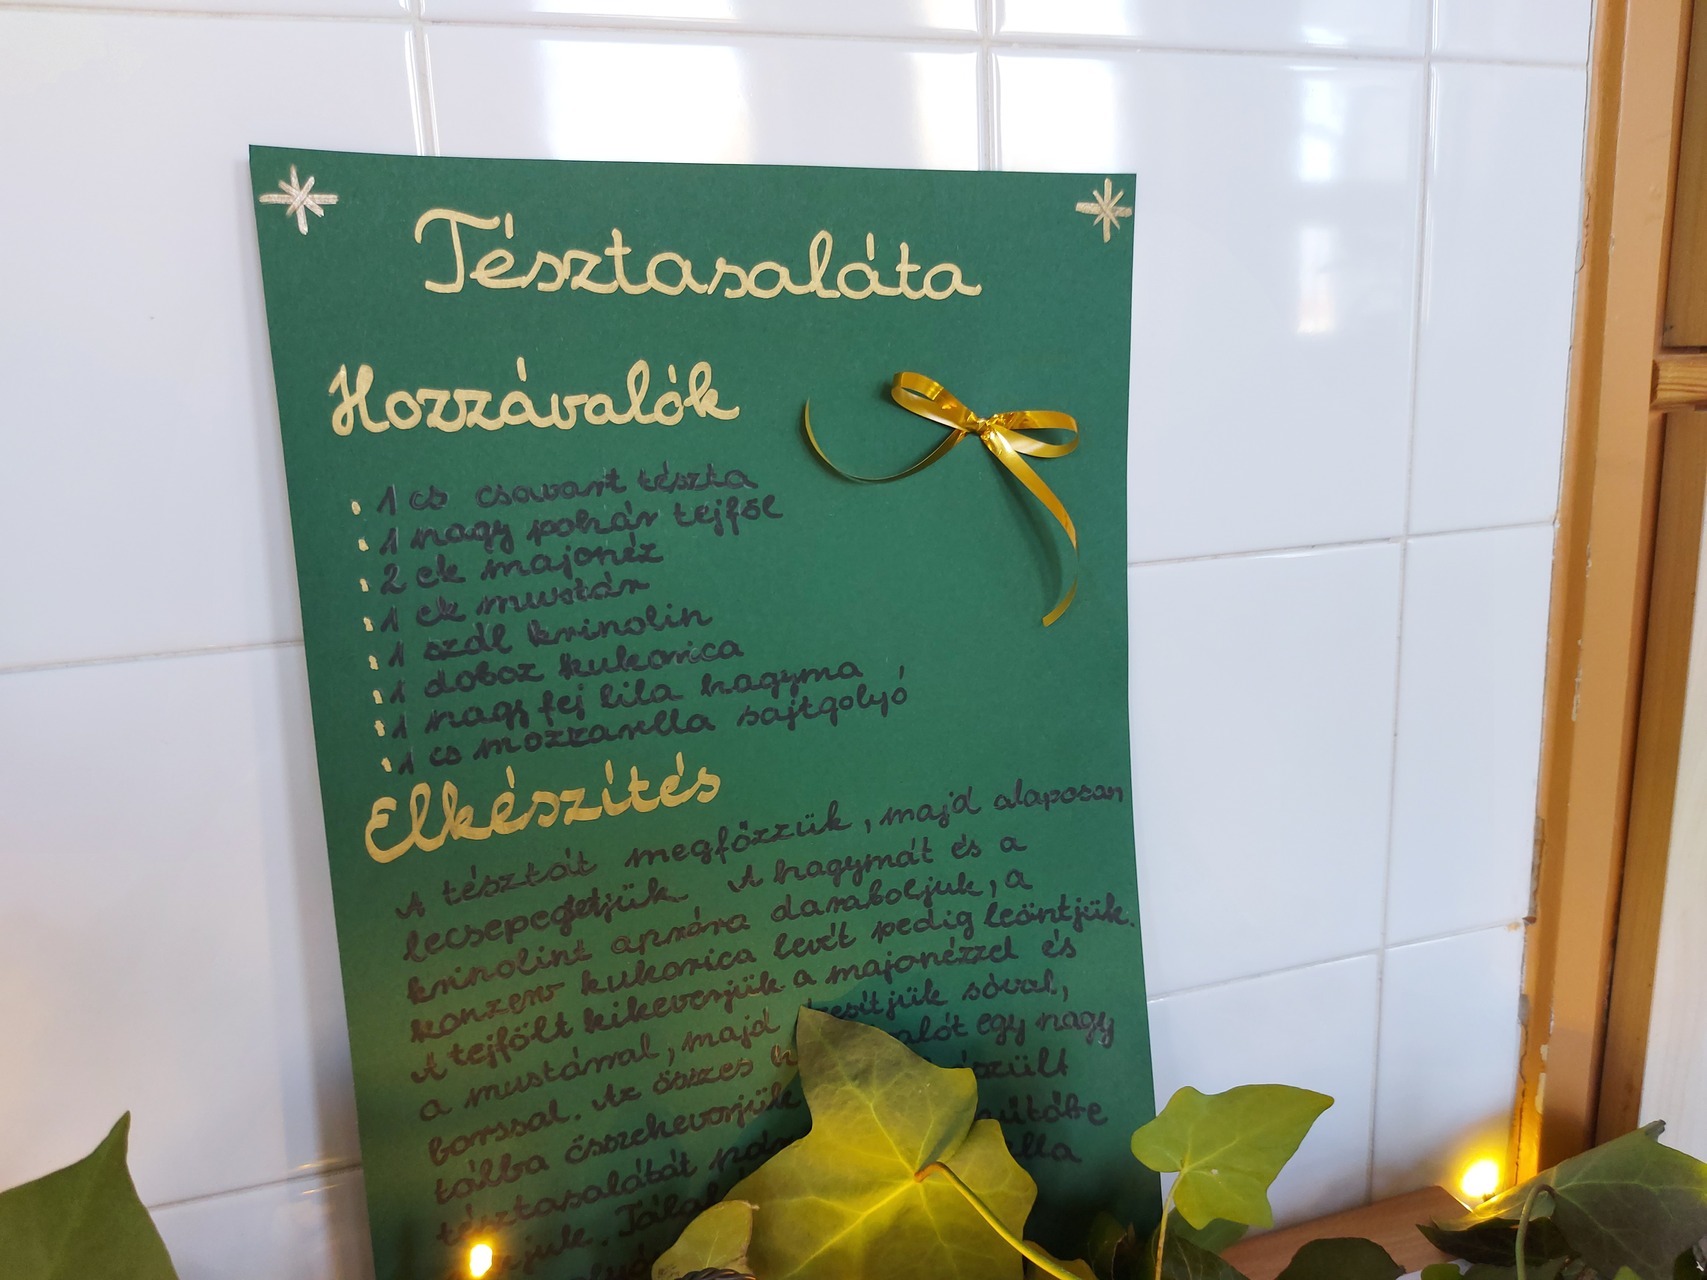 Tésztasaláta
Hozzávalók
1 cs csavart tészta
1 nagy pohár tejföl
2 ek majonéz
1 ek mustár
1 szál krinolin
1 doboz kukorica
1 nagy fej lila hagyma
1 cs mozzarella sajtgolyó
Elkészítés
A tésztát megfőzzük, majd alaposan
lecsepegtetjük. A hagymát és a
krinolint apróra daraboljuk, a
konzerv kukorica levét pedig leöntjük.
A tejfölt kikeverjük a majonézzel és
a mustárral, majd ízesítjük sóval,
borssal. Az összes egy nagy
tálba összekeverjük
tésztasalátát